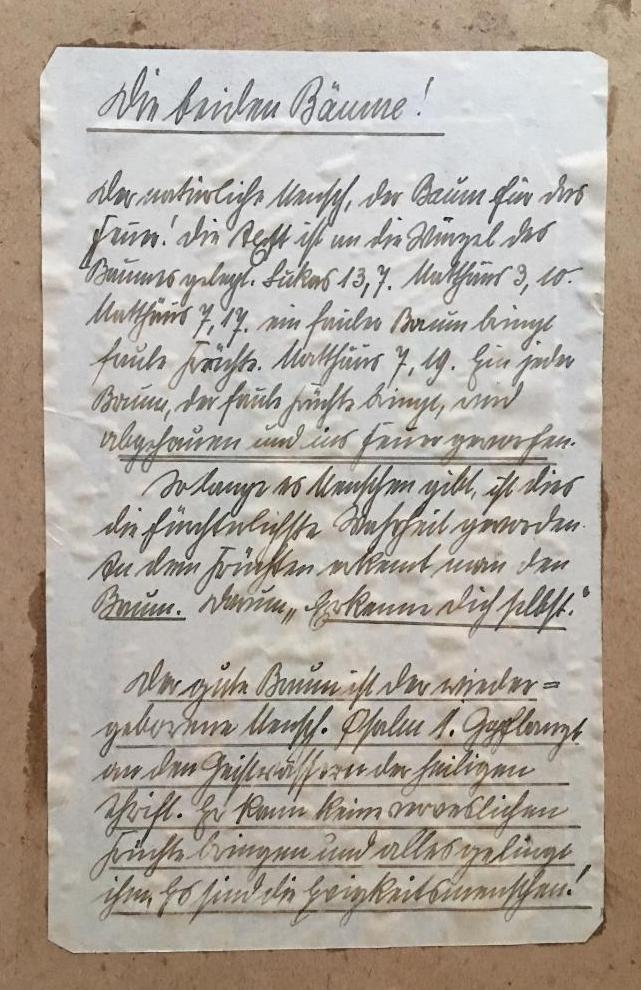 Die beiden Bäume!
Der natürliche Mensch, der Baum für das
Feuer! Die Axt ist an die Wurzel des
Baumes gelegt. Lukas 13,7. Matthäus 3, 10.
Matthäus 7, 17. ein fauler Baum bringt
faule Früchte. Matthäus 7, 19. Ein jeder
Baum, der faule Früchte bringt, wird
abgehauen und ins Feuer geworfen.
So lange es Menschen gibt, ist dies
die fürchterlichste Wahrheit geworden.
An den Früchten erkennt man den
Baum. Darum „Erkenne dich selbst."
Der gute Baum ist der wieder=
geborene Mensch. Psalm 1. Gepflanzt
an den Geistwässern der heiligen
Schrift. Er kann keine
Früchte bringen und alles gelingt
ihm. Es sind die Ewigkeitsmenschen!